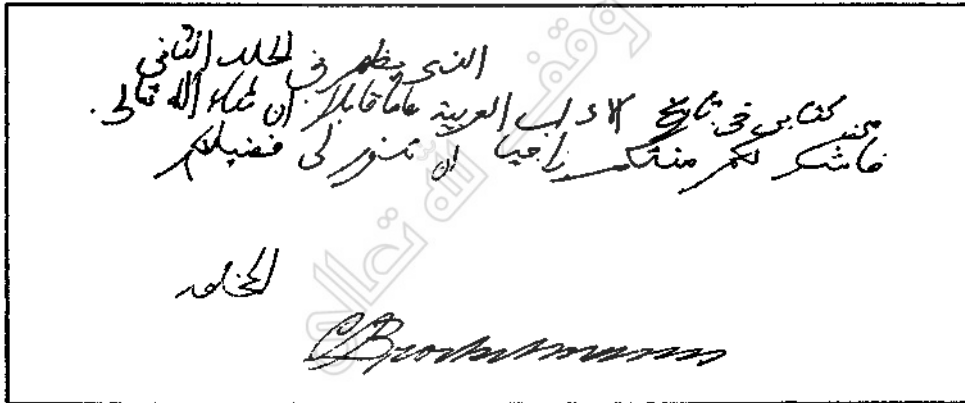 الذى يظهر فى الجلد الثانى
من كتابى فى تاريخ الاداب العربية عاما قابلا ان شاء الله تعالى .
فاشكر لكم منتكم راجيا ان فضلكم
المخلص
C Brockelmann
وقف لله تعالى